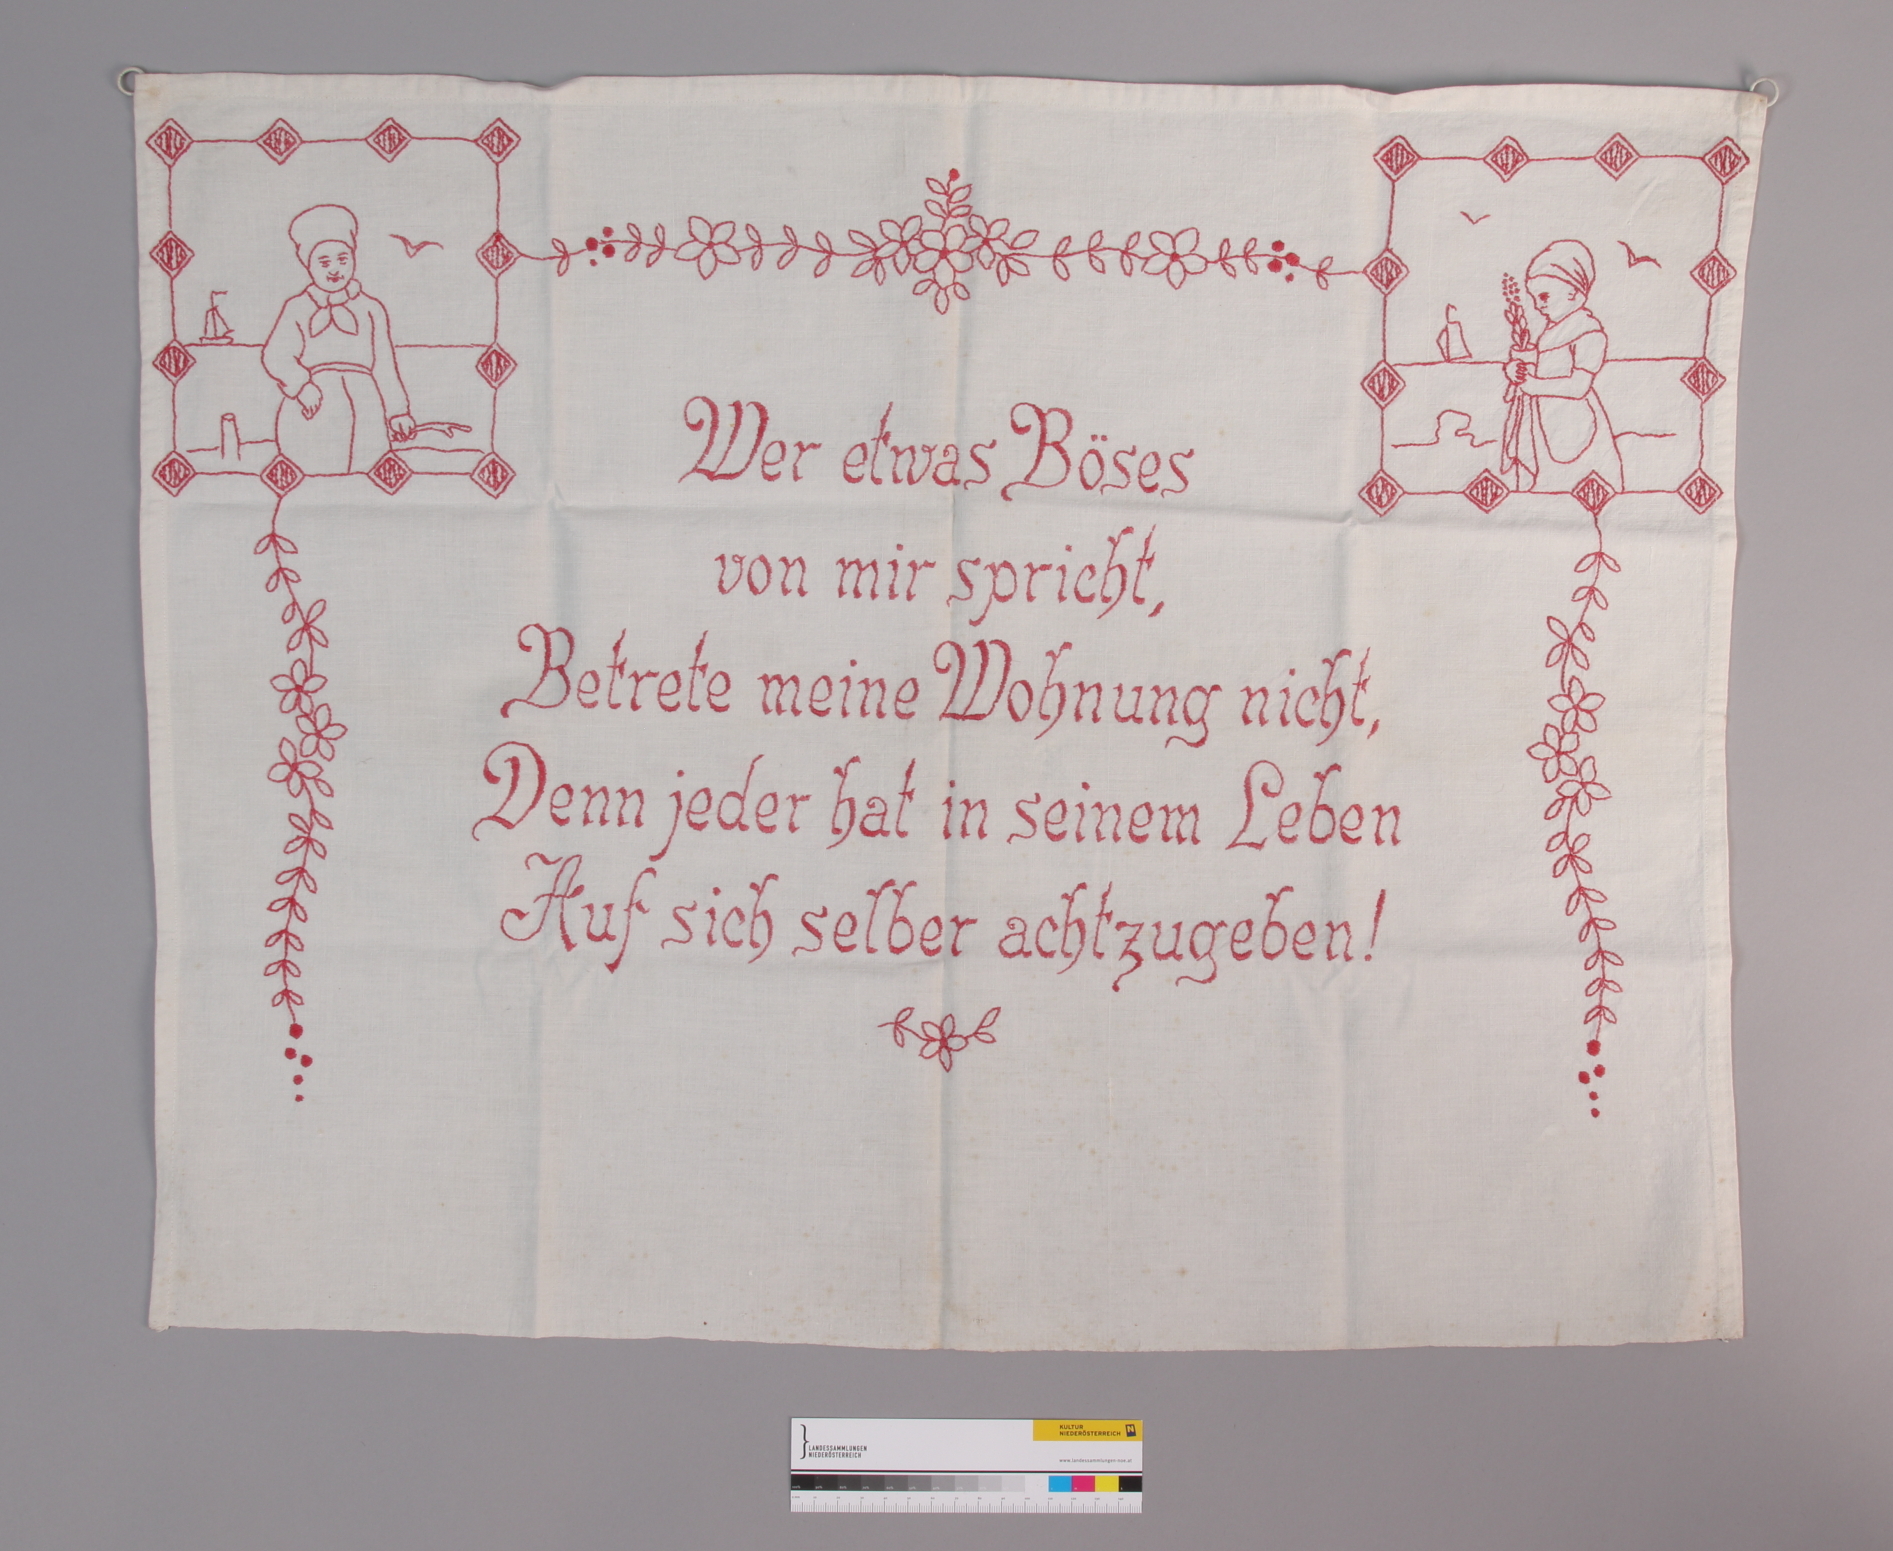 Wer etwas Böses
von mir spricht,
Betrete meine Wohnung nicht,
Denn jeder hat in seinem Leben
Auf sich selber achtzugeben!
LANDESSAMMLUNGEN
NIEDERÖSTERREICH
KULTUR
NIEDERÖSTERREICH
N
www.landessammlungen-noe.at